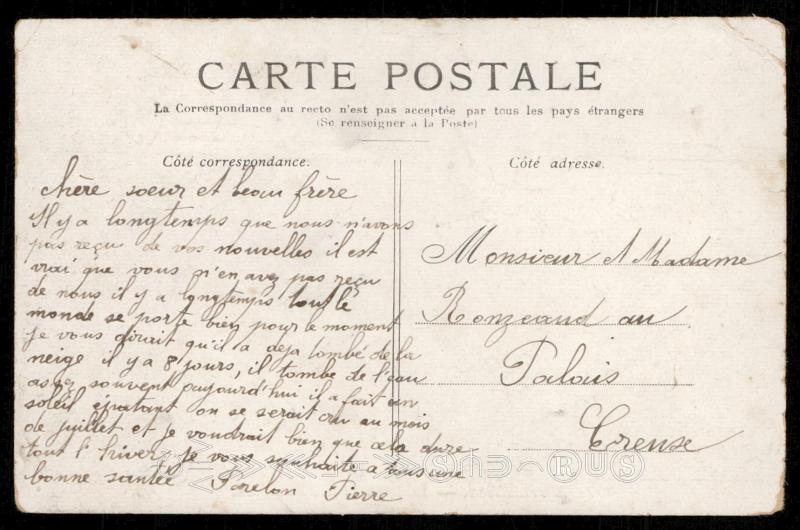 CARTE POSTALE
La Correspondance au recto n'est pas acceptée par tous les pays étrangers
(Se renseigner à la Poste)
Côté correspondance.
chère soeur et beau frère
Il y a longtemps que nous n'avons
pas reçu de vos nouvelles il est
vrai que vous n'en avez pas reçu
de nous il y a longtemps tout le
monde se porte bien pour le moment
je vous dirait qu'il a deja tombé de la
neige il y a 8 jours, il tombe de l'eau
assez souvent aujourd'hui il a fait un
soleil épatant on se serait cru au mois
de juillet et je voudrait bien que cela dure
tout l'hiver je vous souhaite a tous une
bonne santée Pierre
Côté adresse.
Monsieur et Madame
Ronzeaud au
Palais
Creuse
RUS